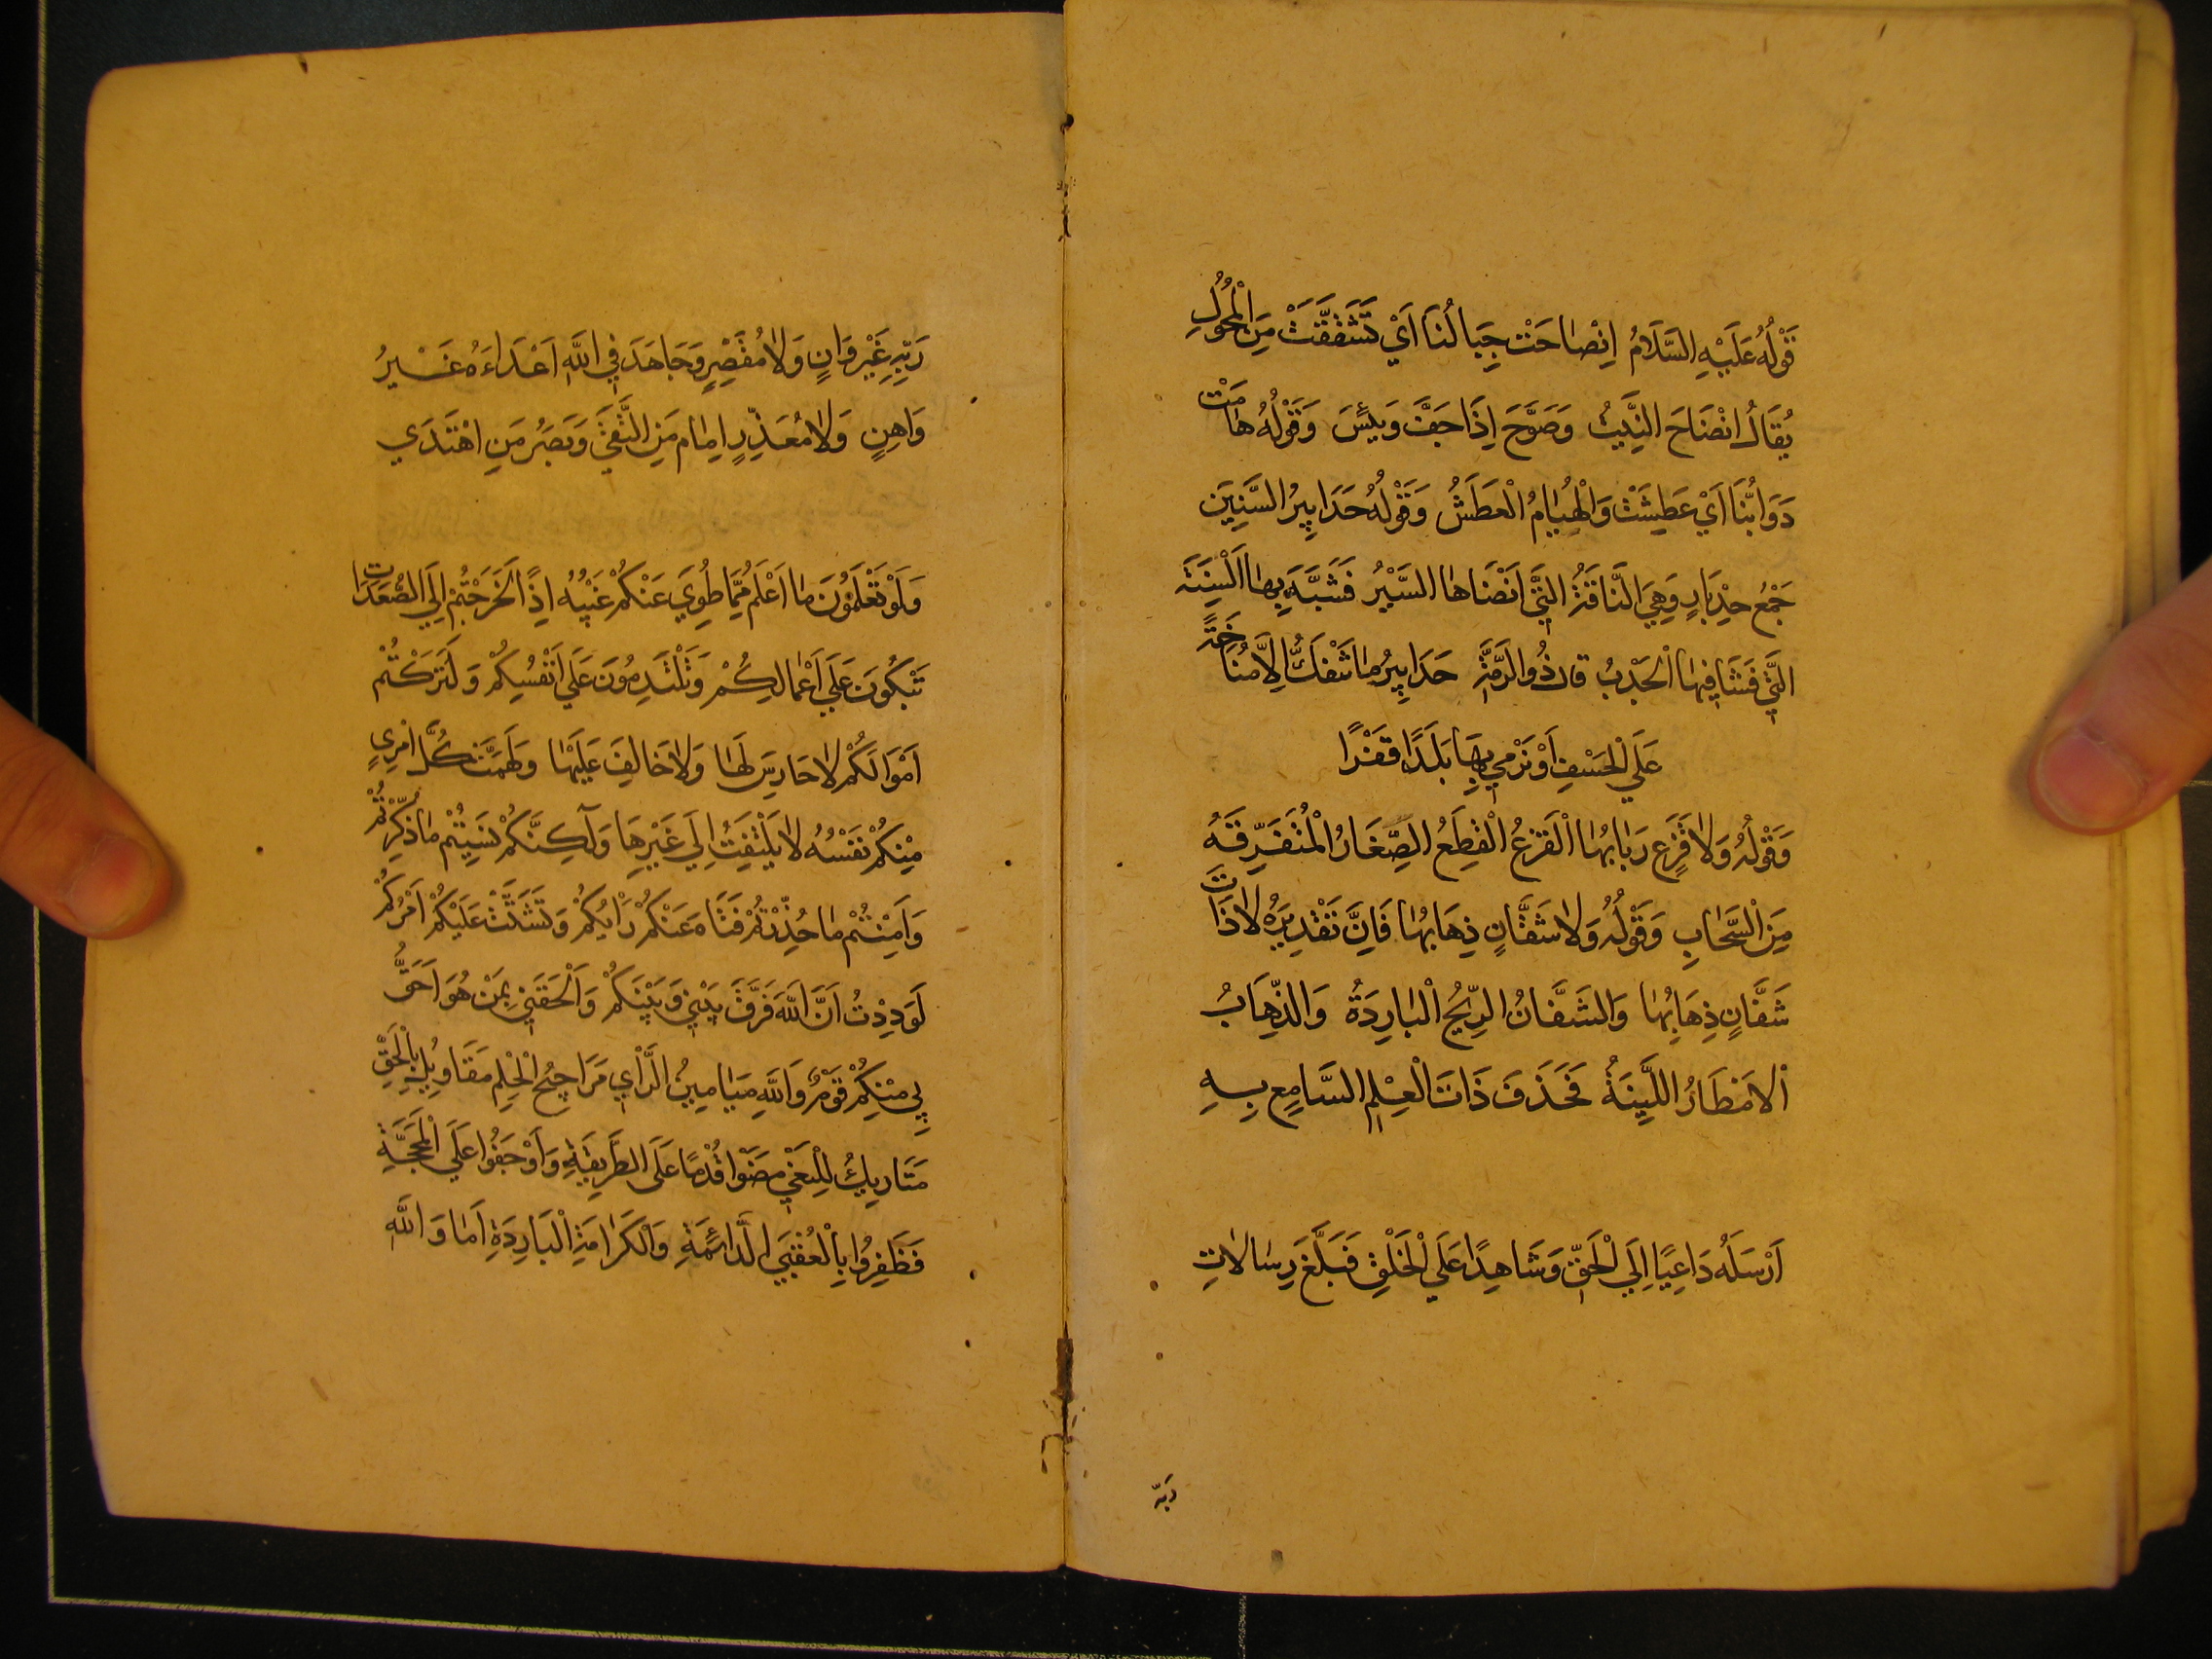 قَوْلُهُ عَلَيْهِ السَّلَامُ اِنْصَاحَتْ جِبَالُنَا اَيْ تَشَقَّقَتْ مِنَ الْمُحُولِ
يُقَالُ انْصَاحَ النَّبْتُ وَصَوَّحَ اِذَا جَفَّ وَيَبِسَ وَقَوْلُهُ هَامَتْ
دَوَابُّنَا اَيْ عَطِشَتْ وَالْهُيَامُ الْعَطَشُ وَقَوْلُهُ حَدَابِيرُ السِّنِينَ
جَمْعُ حِدْبَارٍ وَهِيَ النَّاقَةُ الَّتِي اَنْضَاهَا السَّيْرُ فَشَبَّهَ بِهَا السَّنَةَ
الَّتِي فَشَا فِيهَا الْجَدْبُ قال ذُو الرُّمَّةِ حَدَابِيرُ مَا تَنْفَكُّ اِلَّا مُنَاخَةً
عَلَي الْخَسْفِ اَوْ نَرْمِي بِهَا بَلَدًا قَفْرًا
وَقَوْلُهُ وَلَا قَزَعٍ رَبَابُهَا الْقَزَعُ الْقِطَعُ الصِّغَارُ الْمُتَفَرِّقَةُ
مِنَ السَّحَابِ وَقَوْلُهُ وَلَا شَفَّانٍ ذِهَابُهَا فَاِنَّ تَقْدِيرَهُ لَا ذَاتَ
شَفَّانٍ ذِهَابُهَا وَالشَّفَّانُ الرِّيحُ الْبَارِدَةُ وَالذِّهَابُ
اَلْاَمْطَارُ اللَّيِّنَةُ فَحَذَفَ ذَاتَ لِعِلْمِ السَّامِعِ بِهِ
اَرْسَلَهُ دَاعِيًا اِلَي الْحَقِّ وَشَاهِدًا عَلَي الْخَلْقِ فَبَلَّغَ رِسَالَاتِ
رَبِّهِ
رَبِّهِ غَيْرَ وَانٍ وَلَا مُقَصِّرٍ وَجَاهَدَ فِي اللَّهِ اَعْدَاءَهُ غَيْرَ
وَاهِنٍ وَلَا مُعَذِّرٍ اِمَامُ مَنِ اتَّقَي وَبَصَرُ مَنِ اهْتَدَي
وَلَوْ تَعْلَمُونَ مَا اَعْلَمُ مِمَّا طُوِيَ عَنْكُمْ غَيْبُهُ اِذًا لَخَرَجْتُمْ اِلَي الصُّعَدَاتِ
تَبْكُونَ عَلَي اَعْمَالِكُمْ وَتَلْتَدِمُونَ عَلَي اَنْفُسِكُمْ وَلَتَرَكْتُمْ
اَمْوَالَكُمْ لَا حَارِسَ لَهَا وَلَا خَالِفَ عَلَيْهَا وَلَهَمَّتْ كُلَّ امْرِيٍ
مِنْكُمْ نَفْسُهُ لَا يَلْتَفِتُ اِلَي غَيْرِهَا وَلَكِنَّكُمْ نَسِيتُمْ مَا ذُكِّرْتُمْ
وَاَمِنْتُمْ مَا حُذِّرْتُمْ فَتَاهَ عَنْكُمْ رَاْيُكُمْ وَتَشَتَّتَ عَلَيْكُمْ اَمْرُكُمْ
لَوَدِدْتُ اَنَّ اللَّهَ فَرَّقَ بَيْنِي وَبَيْنَكُمْ وَاَلْحَقَنِي بِمَنْ هُوَ اَحَقُّ
بِي مِنْكُمْ قَوْمٌ وَاللَّهِ مَيَامِينُ الرَّاْيِ مَرَاجِيحُ الْحِلْمِ مَقَاوِيلُ بِالْحَقِّ
مَتَارِيكُ لِلْبَغْيِ مَضَوْا قُدُمًا عَلَي الطَّرِيقَةِ وَاَوْجَفُوا عَلَي الْمَحَجَّةِ
فَظَفِرُوا بِالْعُقْبَي الدَّائِمَةِ وَالْكَرَامَةِ الْبَارِدَةِ اَمَا وَاللَّهِ